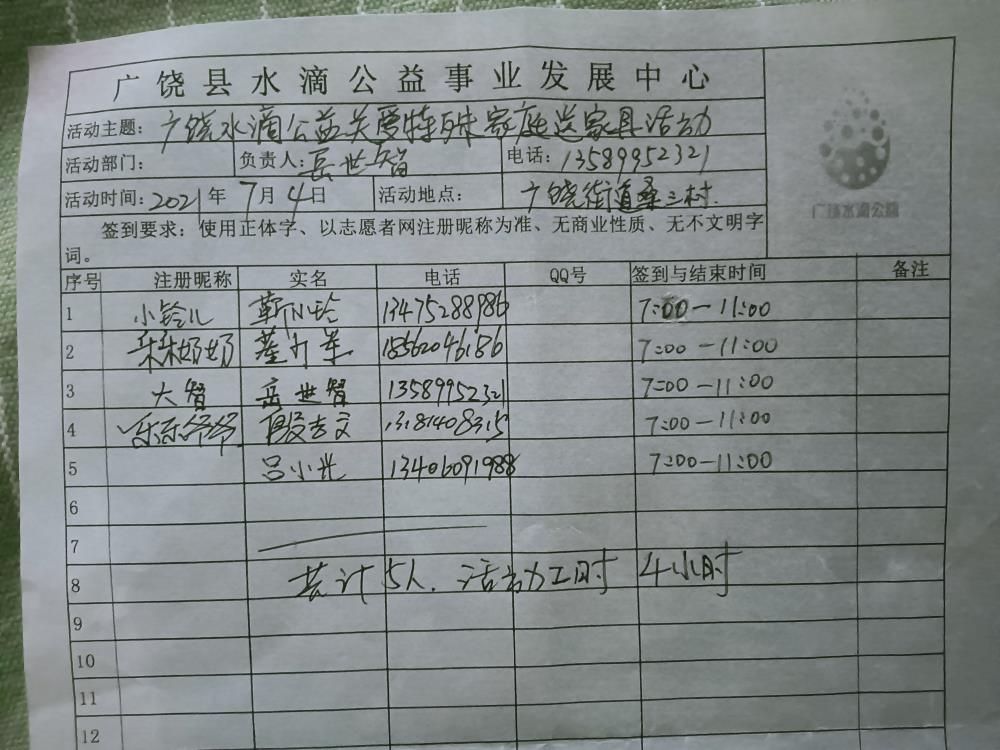 广饶县水滴公益事业发展中心
活动主题：广饶水滴公益关爱特殊家庭送家具活动
活动部门： 负责人：岳世智 电话：13589952321
活动时间：2021年7月4日 活动地点：广饶街道桑三村.
签到要求：使用正体字、以志愿者网注册昵称为准、无商业性质、无不文明字
词。
广饶水滴公益
序号 注册昵称 实名 电话 QQ号 签到与结束时间 备注
1 小铃儿 靳小玲 13475288986 7:00-11:00
2 朵朵奶奶 18562046186 7:00-11:00
3 大智 岳世智 13589952321 7:00-11:00
4 乐乐爷爷 13181408315 7:00-11:00
5 吕小光 13406091988 7:00-11:00
6
7
8 共计5人.活动工时 4小时
9
10
11
12